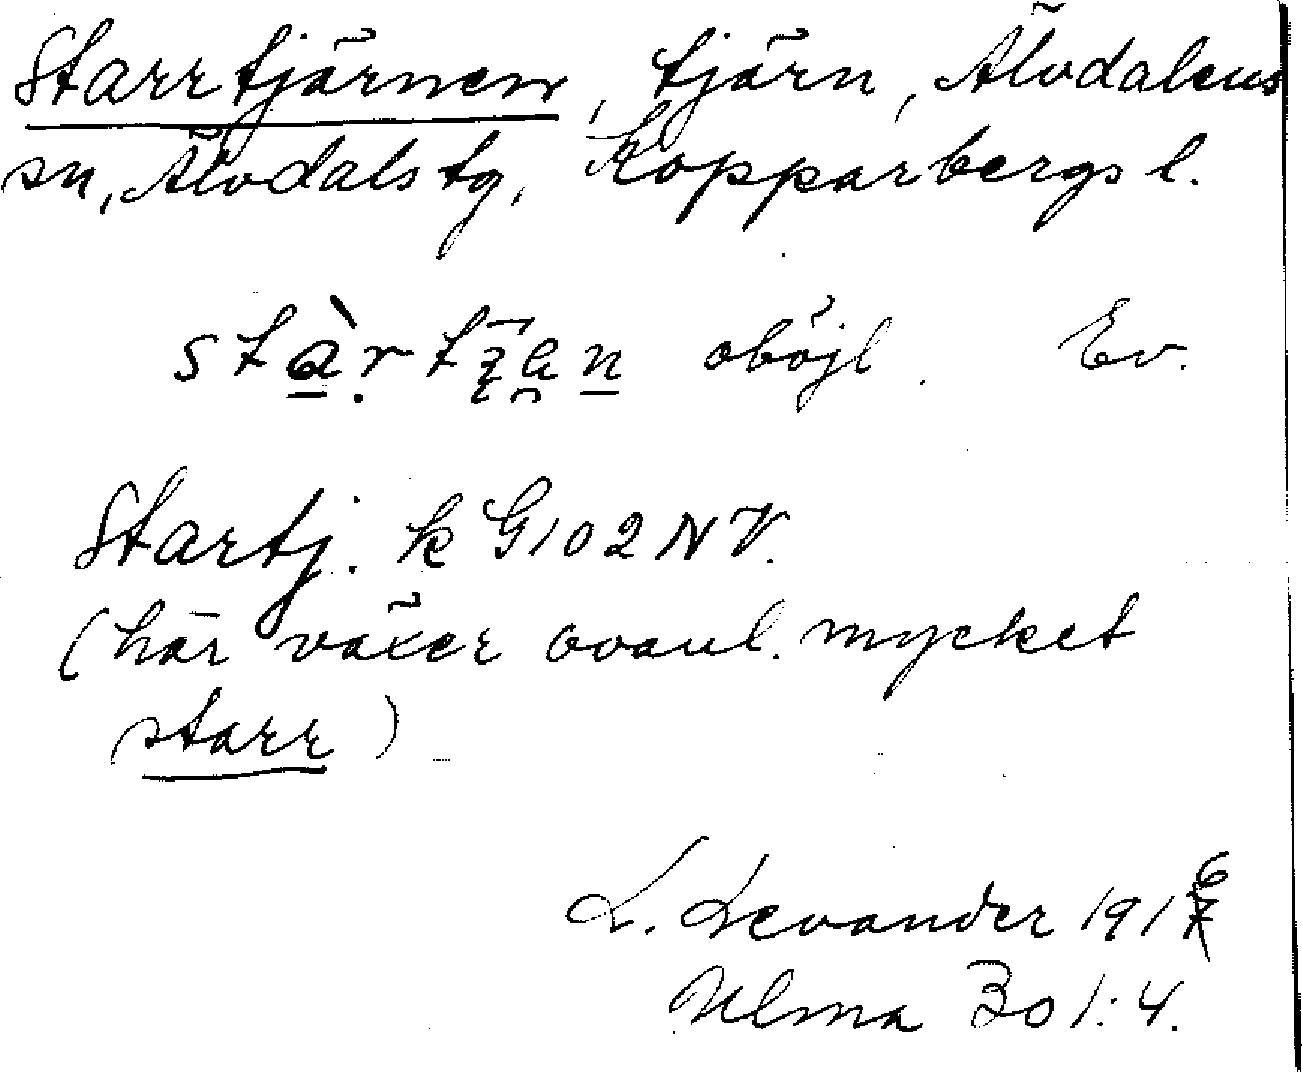 Starrtjärnen, tjärn, Älvdalens
sn, Älvdals tg, Kopparbergs l.
oböjl. Ev.
Startj. k G102NV.
(här växer ovanl. mycket
starr)
L. Levander 1916
Ulma 301:4.